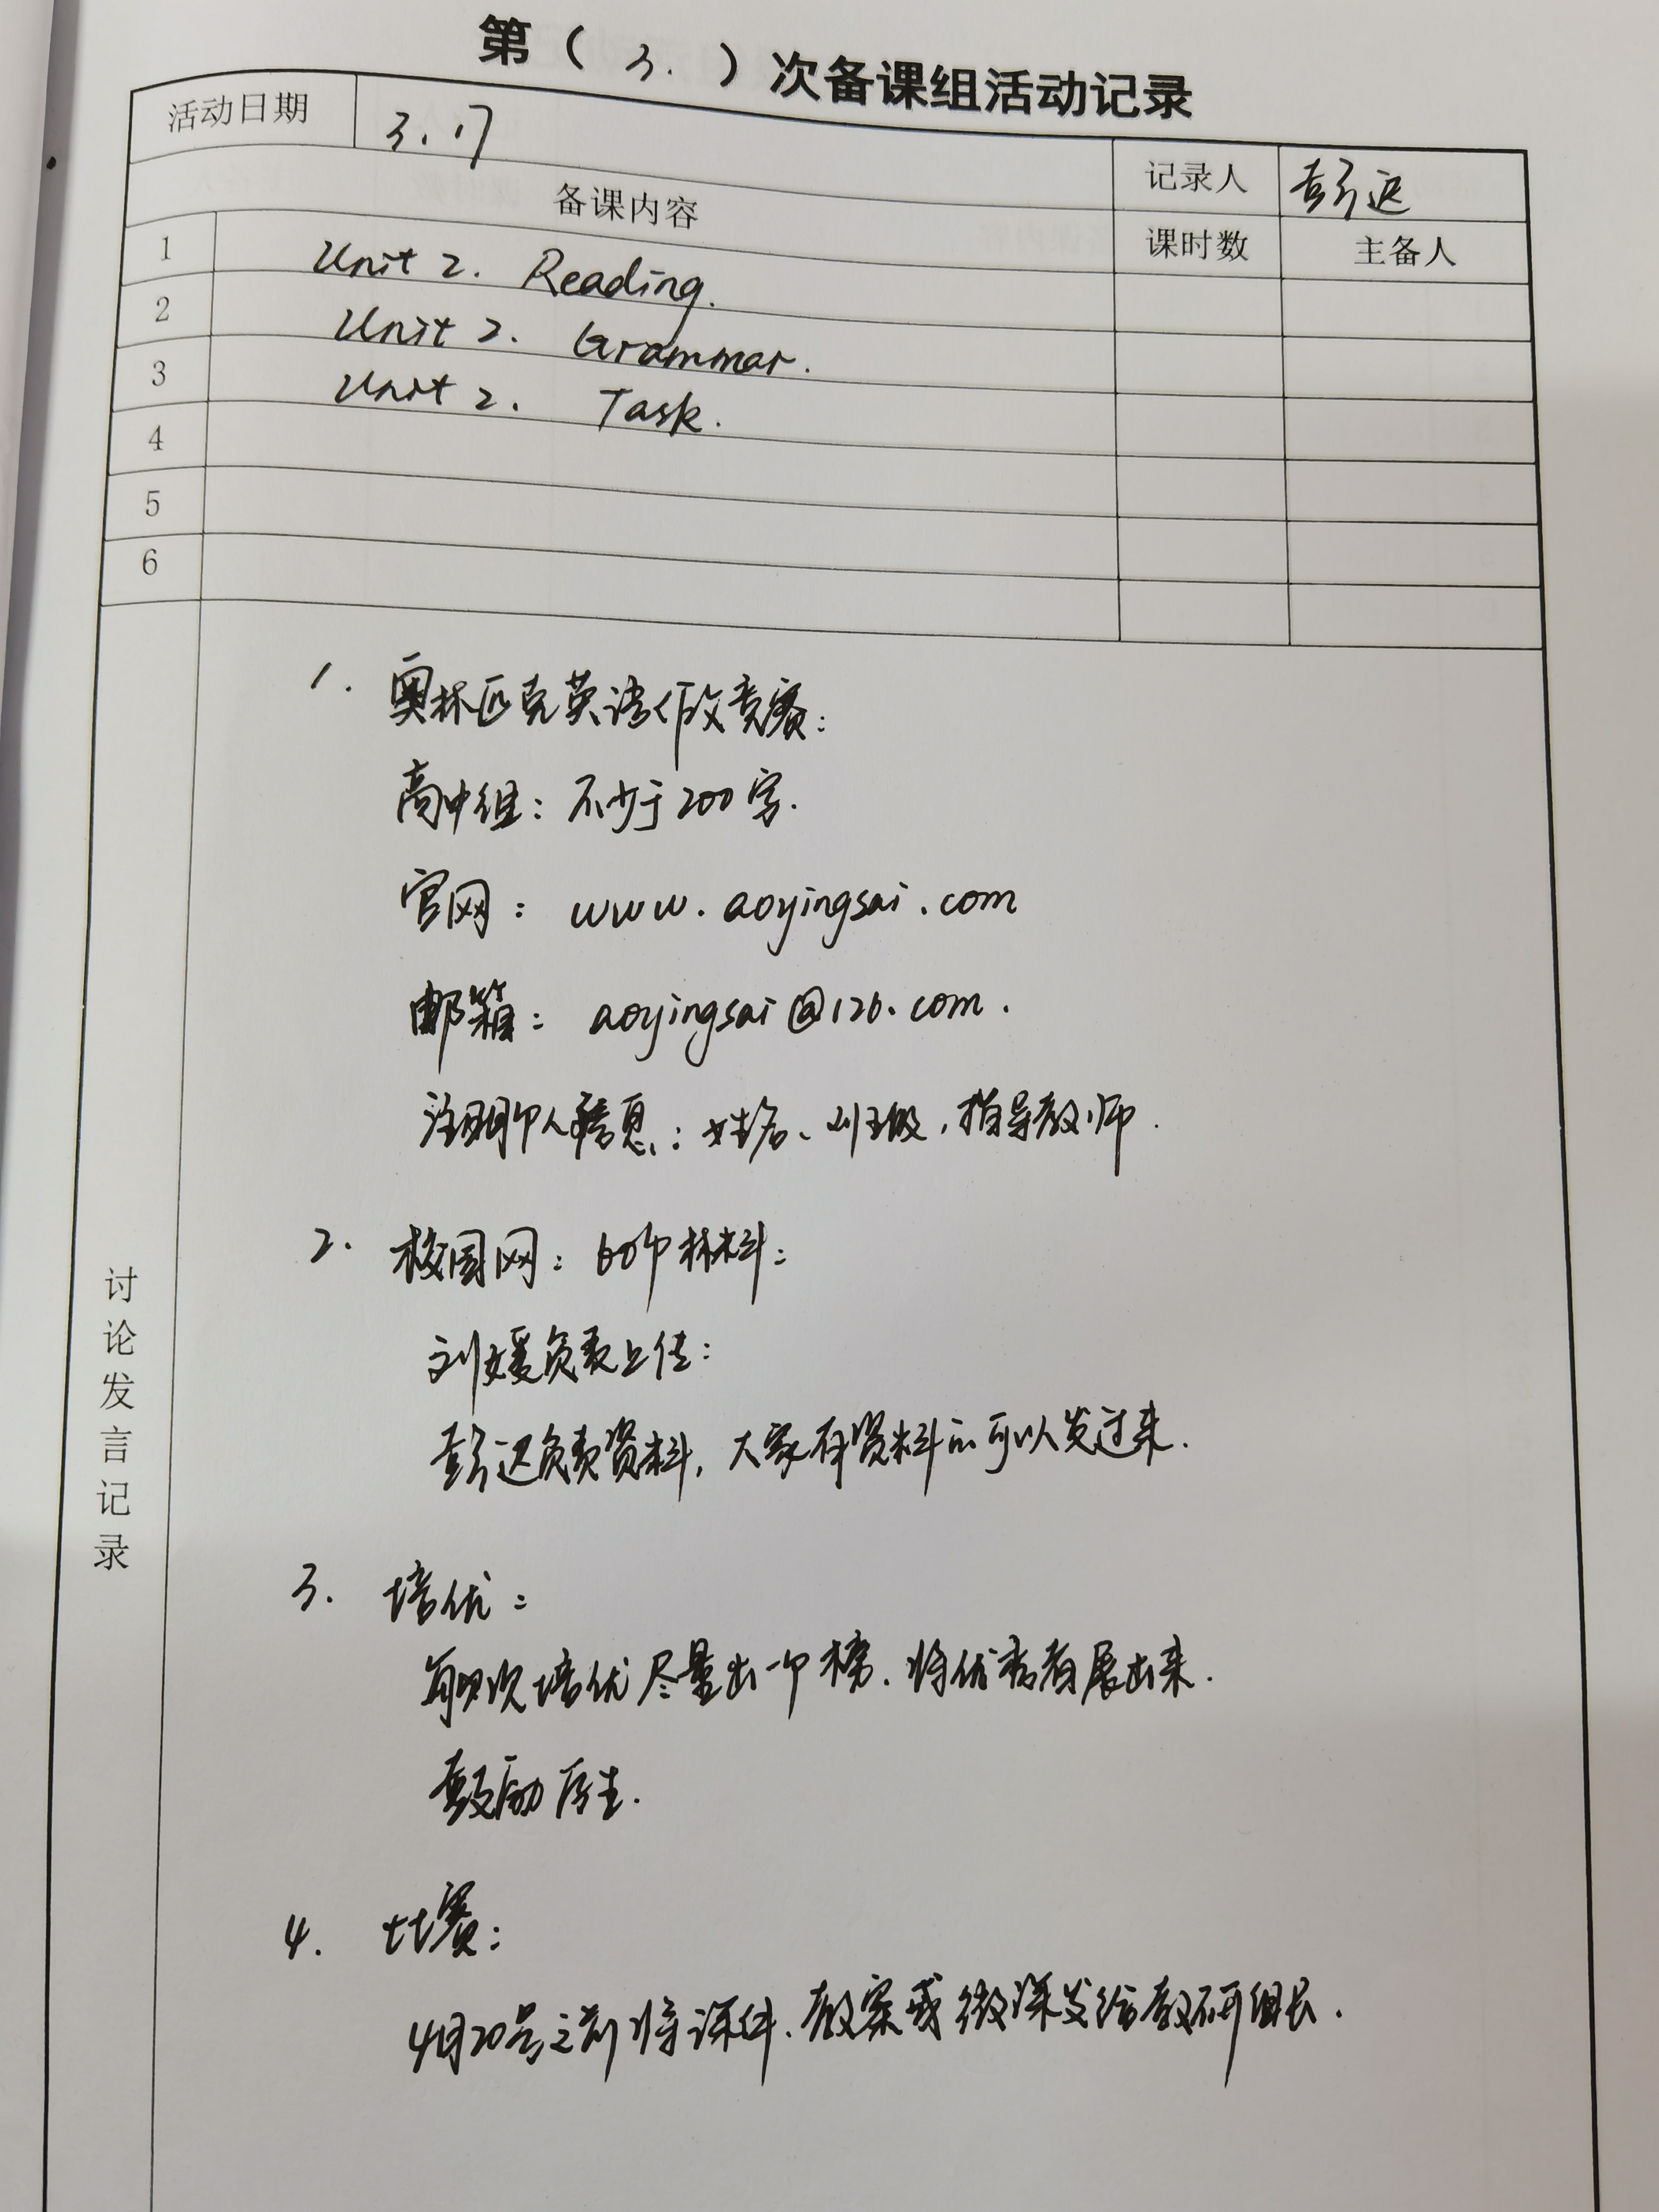 第（3.）次备课组活动记录
活动日期 3.17 记录人 彭迟
备课内容 课时数 主备人
1 Unit 2. Reading.
2 Unit 2. Grammar.
3 Unit 2. Task.
4
5
6
讨论发言记录
1. 奥林匹克英语作文竞赛:
高中组: 不少于200字.
官网: www.aoyingsai.com
邮箱: aoyingsai@126.com.
注明个人信息: 姓名、班级,指导教师.
2. 校园网: 60个材料:
刘媛负责上传:
彭迟负责资料, 大家有资料的可以发过来.
3. 培优:
每次培优尽量出一个榜.将优秀者展出来.
鼓励后生.
4. 比赛:
4月20号之前将课件.教案或微课发给教研组长.